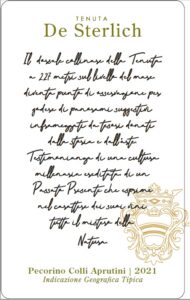 TENUTA
De Sterlich
Il dorsale collinare della Tenuta
a 227 metri sul livello del mare
diventa punto di osservazione per
godere di panorami suggestivi
impreziositi da tesori donati
dalla storia e dall'arte
Testimonianza di una cultura
millenaria ereditata di un
Passato Presente che esprime
nel carattere dei suoi vini
tutto il mistero della
Natura
Pecorino Colli Aprutini | 2021
Indicazione Geografica Tipica